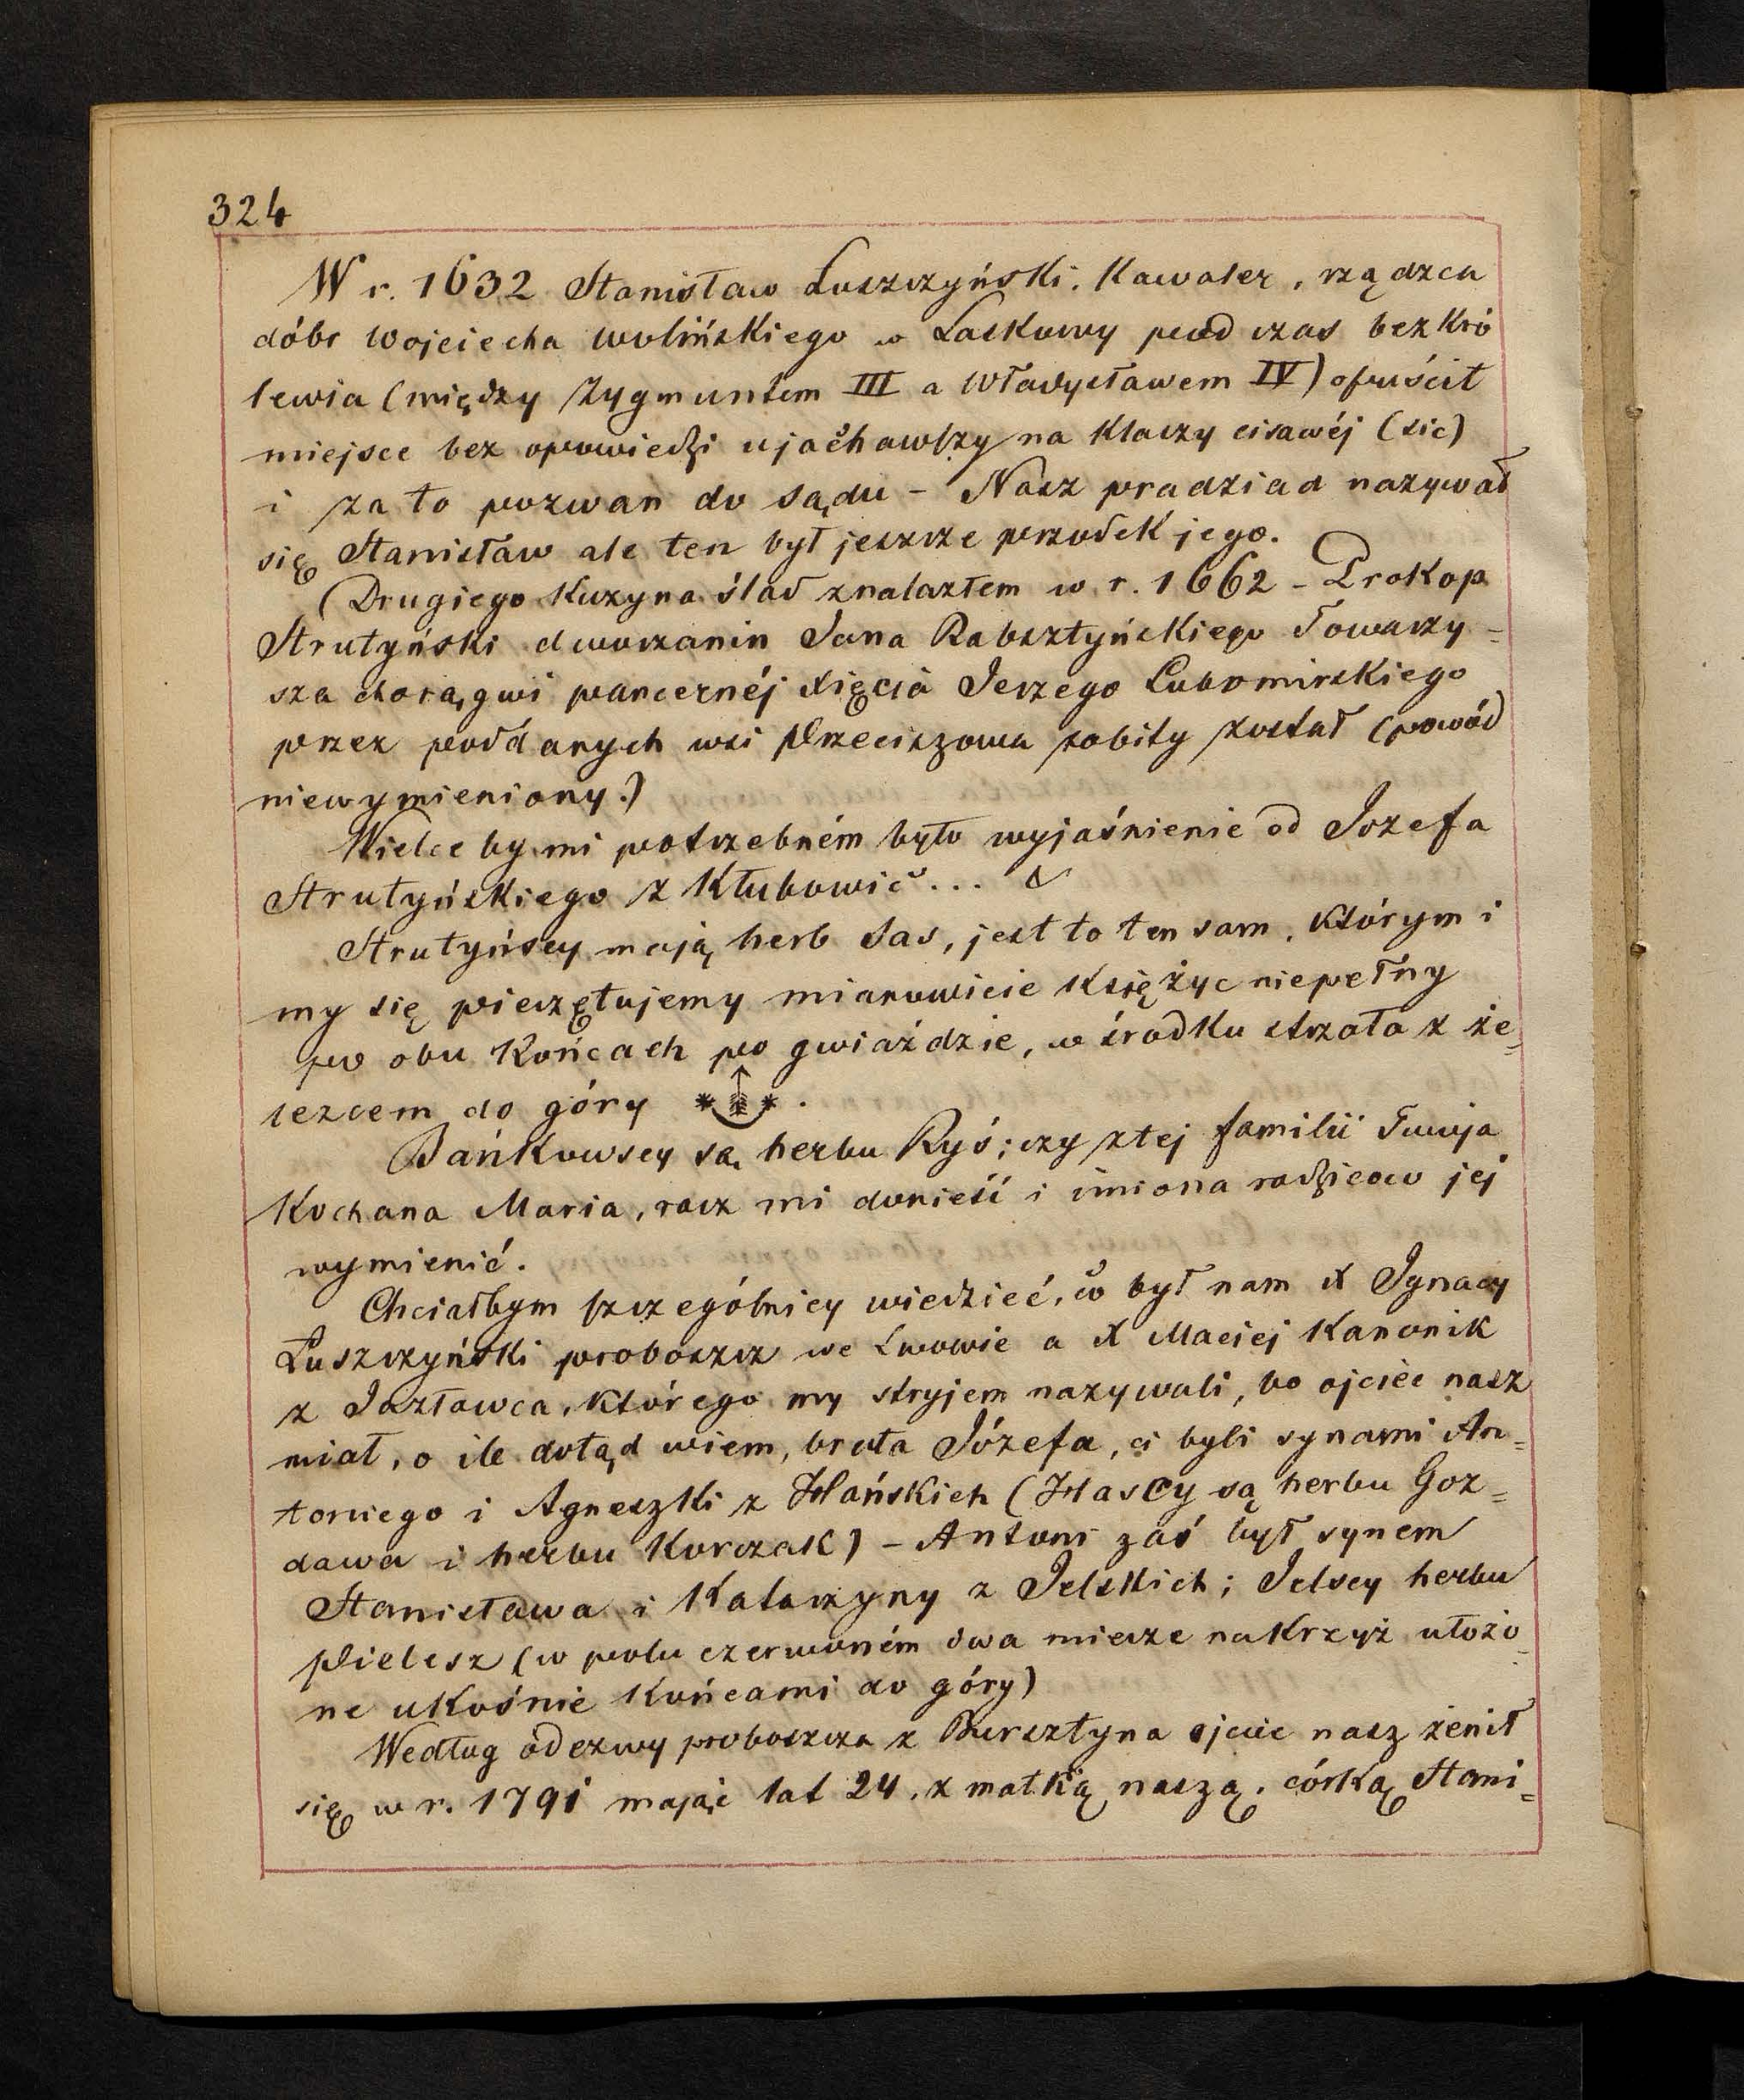 324
W r. 1632 Stanisław Łuszczyński. Kawaler, rządzca
dóbr Wojciecha Wolińskiego w Laskowy pod czas bezkró
lewia (między Zygmuntem III a Władysławem IV) opuścił
miejsce bez opowiedzi ujachawszy na klaczy cisawéj (sic)
i za to pozwan do sądu - Nasz pradziad nazywał
się Stanisław ale ten był jeszcze przodek jego.
(Drugiego Kuzyna ślad znalazłem w r. 1662 - Prokop
Strutyński dworzanin Jana Rabsztyńskiego Towarzy=
sza chorągwi pancernéj Xięcia Jerzego Lubomirskiego
przez poddanych wsi Przeciszowa zobity został (powód
niewymieniony.)
Wielce by mi potrzebném było wyjaśnienie od Jozefa
Strutyńskiego z Kłubowic...
Strutyńscy mają herb Sas, jest to ten sam, którym i
my się pieczętujemy mianowicie Księżyc niepełny
po obu Końcach po gwiaździe, w środku strzała z że=
lezcem do góry .
Bańkowscy są herbu Ryś; czy z tej familii Twoja
Kochana Maria, racz mi donieść i imiona rodziców jej
wymienić.
Chciałbym szczególniej wiedzieć, co był nam X Ignacy
Łuszczyński proboszcz we Lwowie a X Maciej Kanonik
z Jazłowca, którego my stryjem nazywali, bo ojciec nasz
miał, o ile dotąd wiem, brata Józefa, ci byli synami An=
toniego i Agneszki z Hańskich (Hascy są herbu Goz=
dawa i herbu Korczak) - Antoni zaś był synem
Stanisława i Katarzyny z Jelskich; Jelscy herbu
Pielesz (w polu czerwoném dwa miecze nakrzyż ułożo
ne ukośnie Końcami do góry)
Według odezwy proboszcza z Bursztyna ojciec nasz żenił
się w r. 1791 mając lat 24, z matką naszą, córką Stani=